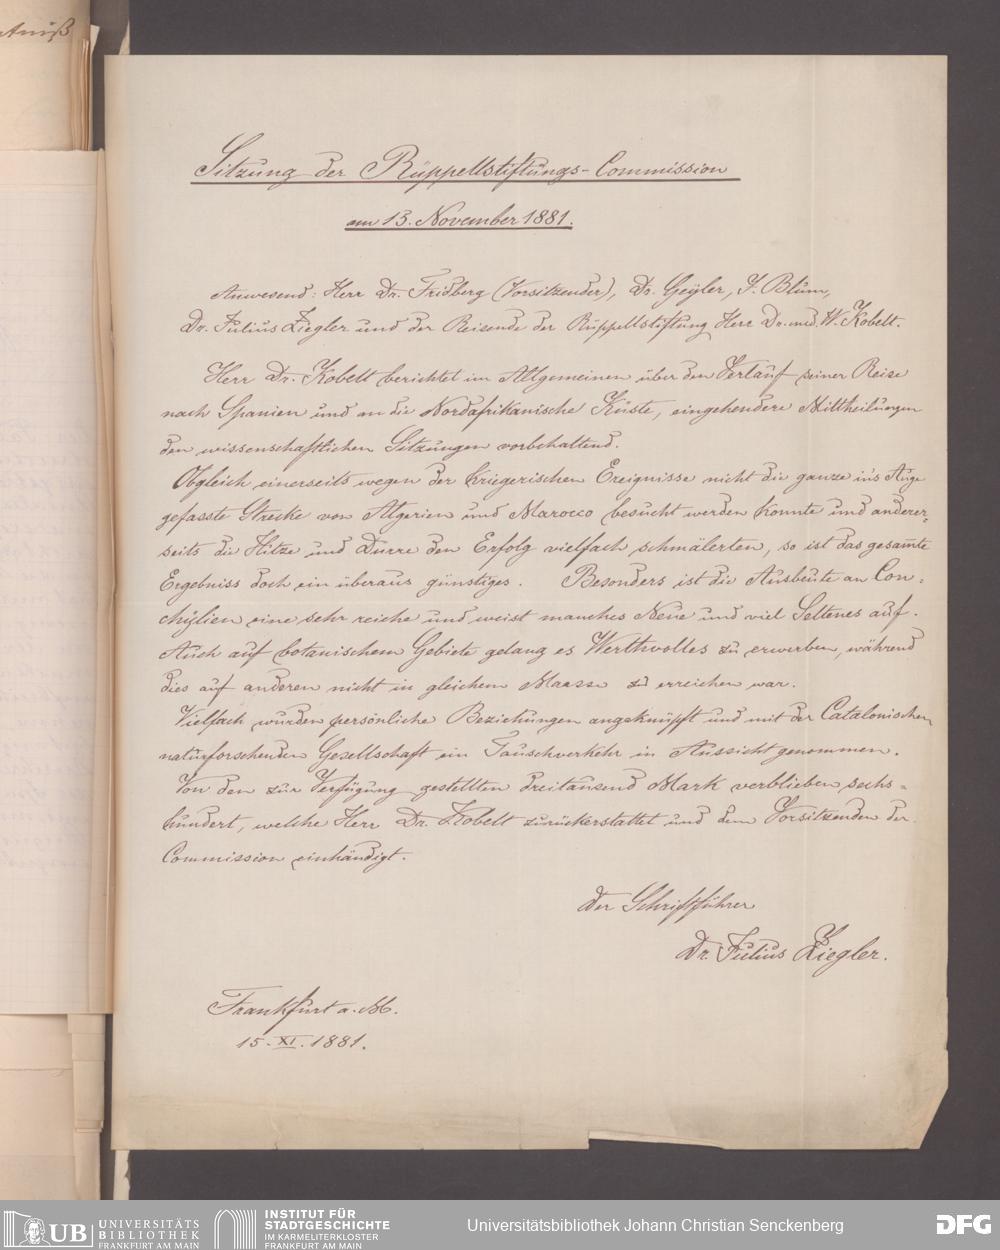 tniß
Sitzung der Rüppellstiftungs-Commission
am 13. November 1881.
Anwesend: Herr Dr. Fridberg (Vorsitzender), Dr. Geyler, J. Blum,
Dr. Julius Ziegler und der Reisende der Rüppellstiftung Herr Dr. med. W. Kobelt.
Herr Dr. Kobelt berichtet im Allgemeinen über den Verlauf seiner Reise
nach Spanien und an die Nordafrikanische Küste, eingehendere Mittheilungen
den wissenschaftlichen Sitzungen vorbehaltend.
Obgleich einerseits wegen der kriegerischen Ereignisse nicht die ganze in's Auge
gefasste Strecke von Algerien und Marocco besucht werden konnte und anderer-
seits die Hitze und Dürre den Erfolg vielfach schmälerten, so ist das gesam̄te
Ergebniss doch ein überaus günstiges. Besonders ist die Ausbeute an Con-
chylien eine sehr reiche und weist manches Neue und viel Seltenes auf.
Auch auf botanischem Gebiete gelang es Werthvolles zu erwerben, während
dies auf anderen nicht in gleichem Maasse zu erreichen war.
Vielfach wurden persönliche Beziehungen angeknüpft und mit der Catalonischen
naturforschenden Gesellschaft ein Tauschverkehr in Aussicht genommen.
Von den zur Verfügung gestellten dreitausend Mark verblieben sechs-
hundert, welche Herr Dr. Kobelt zurückerstattet und dem Vorsitzenden der
Commission einhändigt.
Der Schriftführer
Dr. Julius Ziegler.
Frankfurt a. M.
15. XI. 1881.
UB UNIVERSITÄTS
BIBLIOTHEK
FRANKFURT AM MAIN
INSTITUT FÜR
STADTGESCHICHTE
IM KARMELITERKLOSTER
FRANKFURT AM MAIN
Universitätsbibliothek Johann Christian Senckenberg
DFG